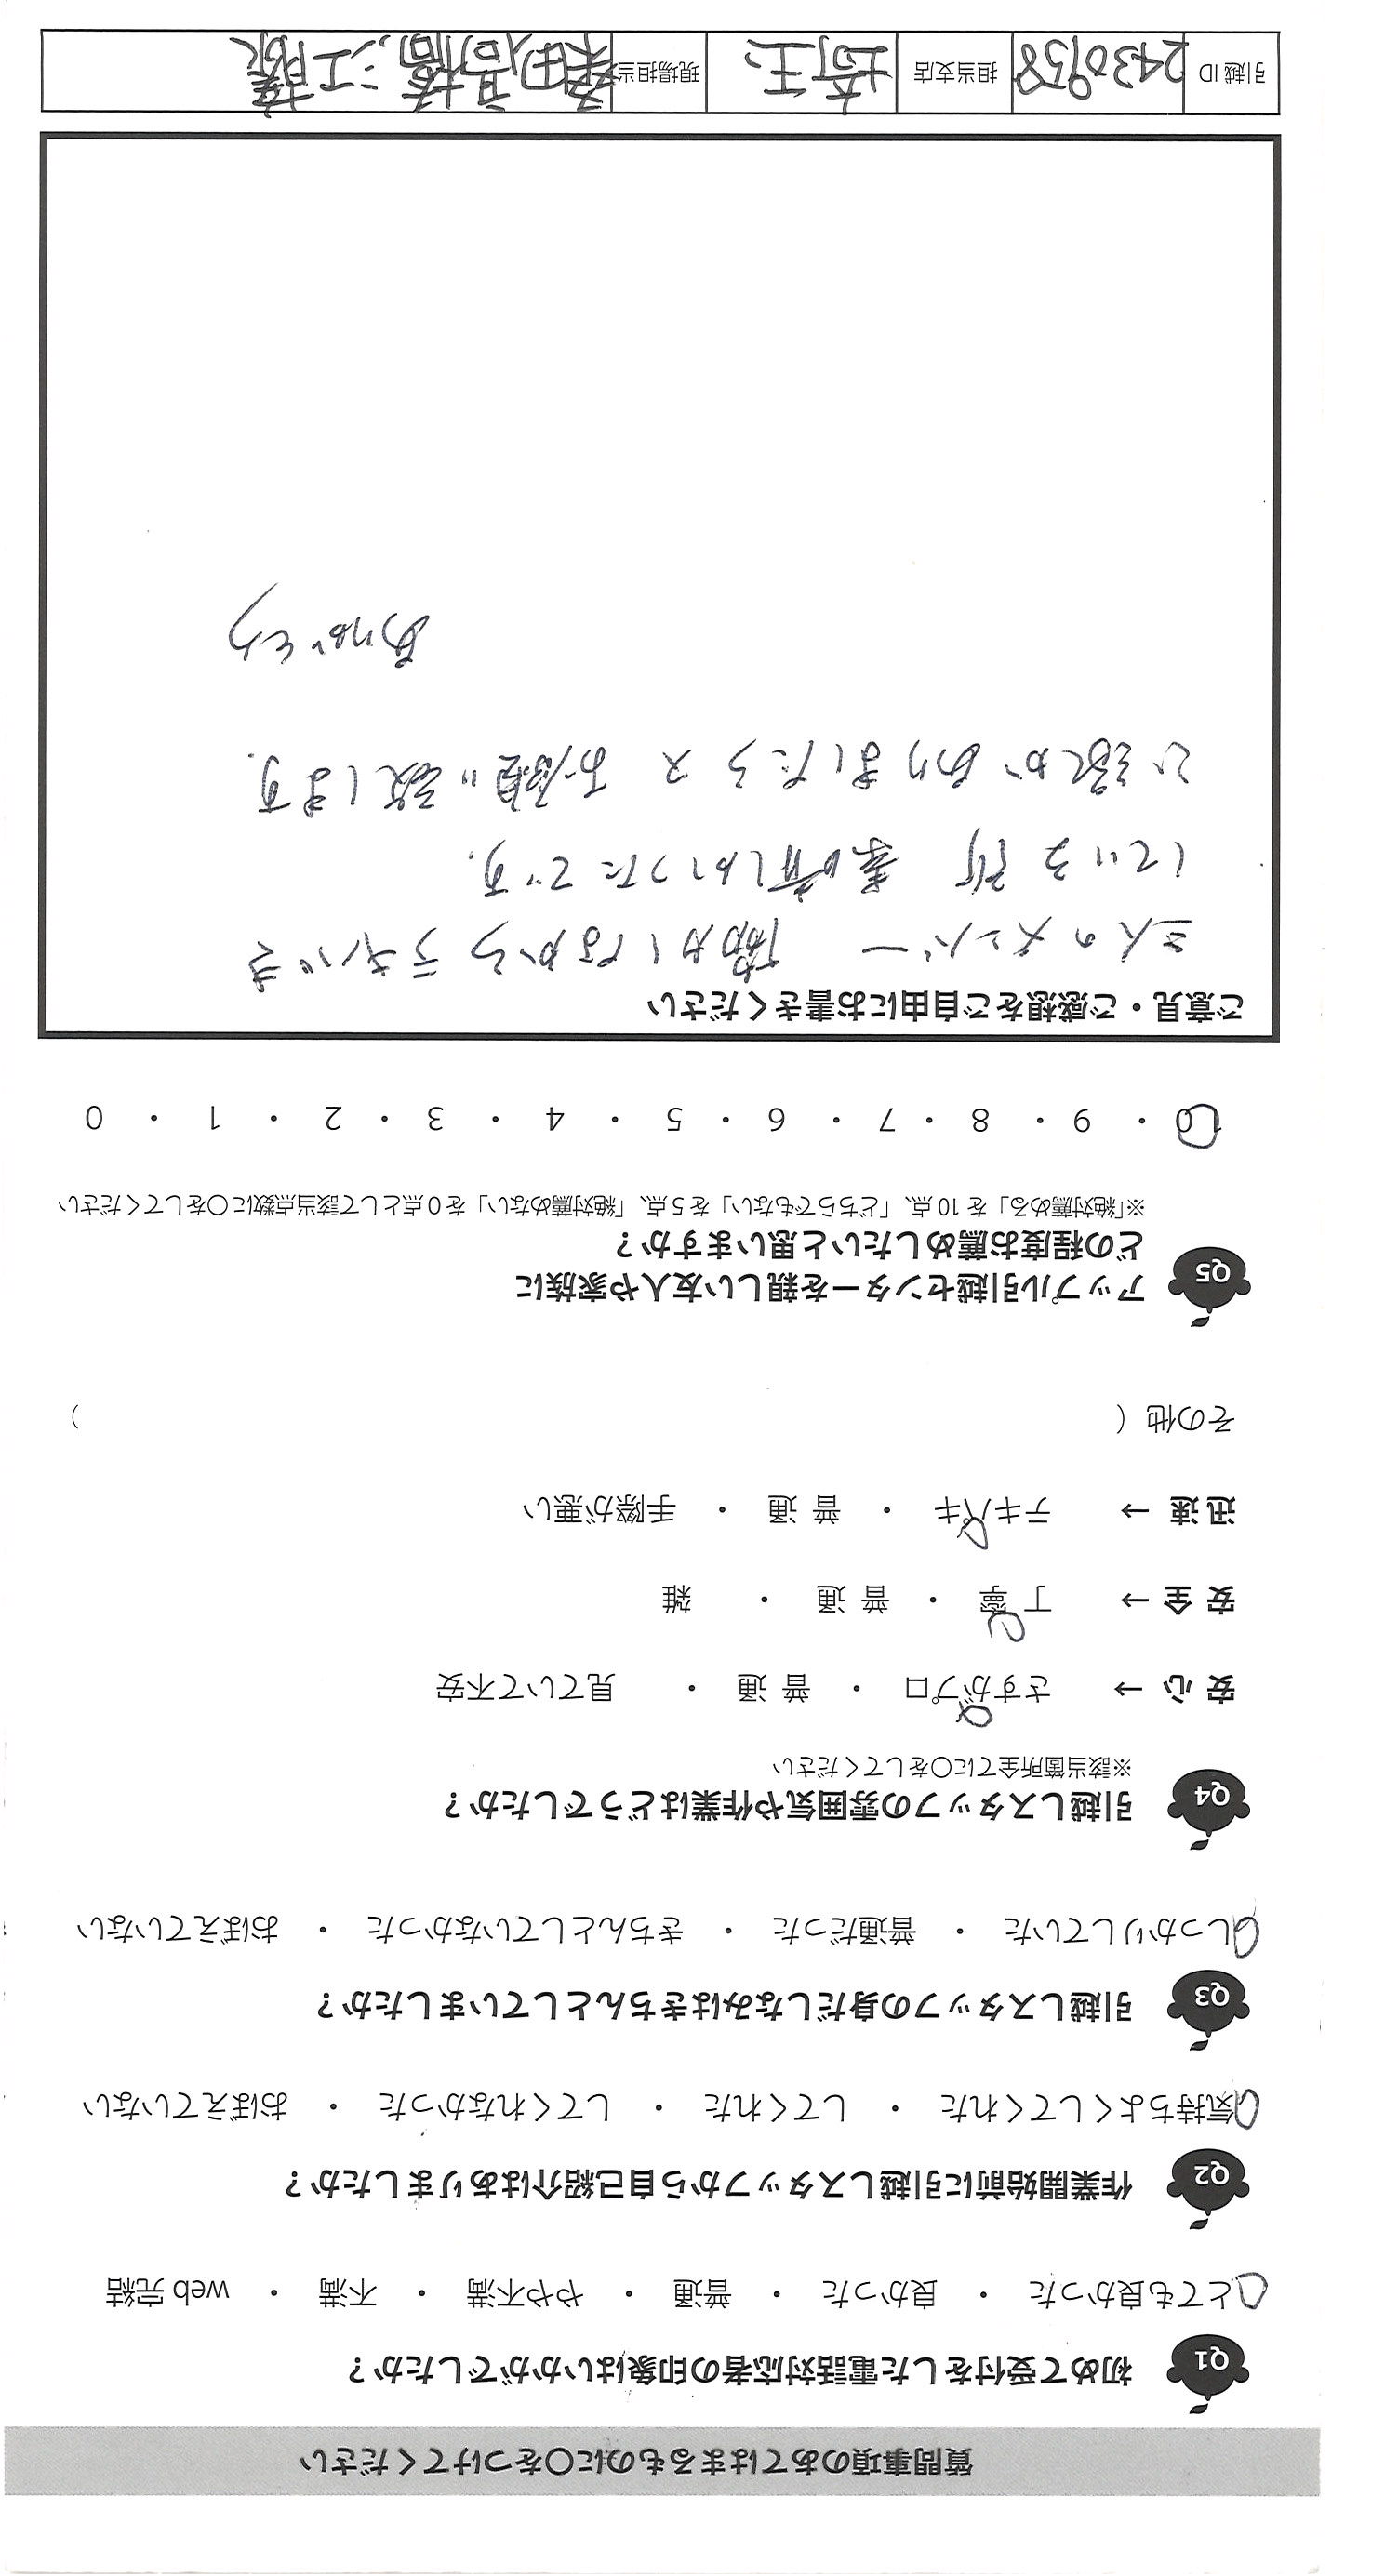 質問事項のあてはまるものに〇をつけてください
Q1 初めて受付をした電話対応者の印象はいかがでしたか？
とても良かった ・ 良かった ・ 普通 ・ やや不満 ・ 不満 ・ web 完結
Q2 作業開始前に引越しスタッフから自己紹介はありましたか？
気持ちよくしてくれた ・ してくれた ・ してくれなかった ・ おぼえていない
Q3 引越しスタッフの身だしなみはきちんとしていましたか？
しっかりしていた ・ 普通だった ・ きちんとしていなかった ・ おぼえていない
Q4 引越しスタッフの雰囲気や作業はどうでしたか？
※該当箇所全てに〇をしてください
安 心 → さすがプロ ・ 普 通 ・ 見ていて不安
安 全 → 丁 寧 ・ 普 通 ・ 雑
迅 速 → テキパキ ・ 普 通 ・ 手際が悪い
その他（ ）
Q5 アップル引越センターを親しい友人や家族に
どの程度お薦めしたいと思いますか？
※「絶対薦める」を 10 点、「どちらでもない」を 5 点、「絶対薦めない」を 0 点として該当点数に〇をしてください
10 ・ 9 ・ 8 ・ 7 ・ 6 ・ 5 ・ 4 ・ 3 ・ 2 ・ 1 ・ 0
ご意見・ご感想をご自由にお書きください
三人のメンバー 協力しながらテキパキ
している所 素晴しかったです.
い縁がありましたら又お願い致します.
ありがとう
引越 ID 2430958 担当支店 埼玉 現場担当 桑田 高橋 江藤